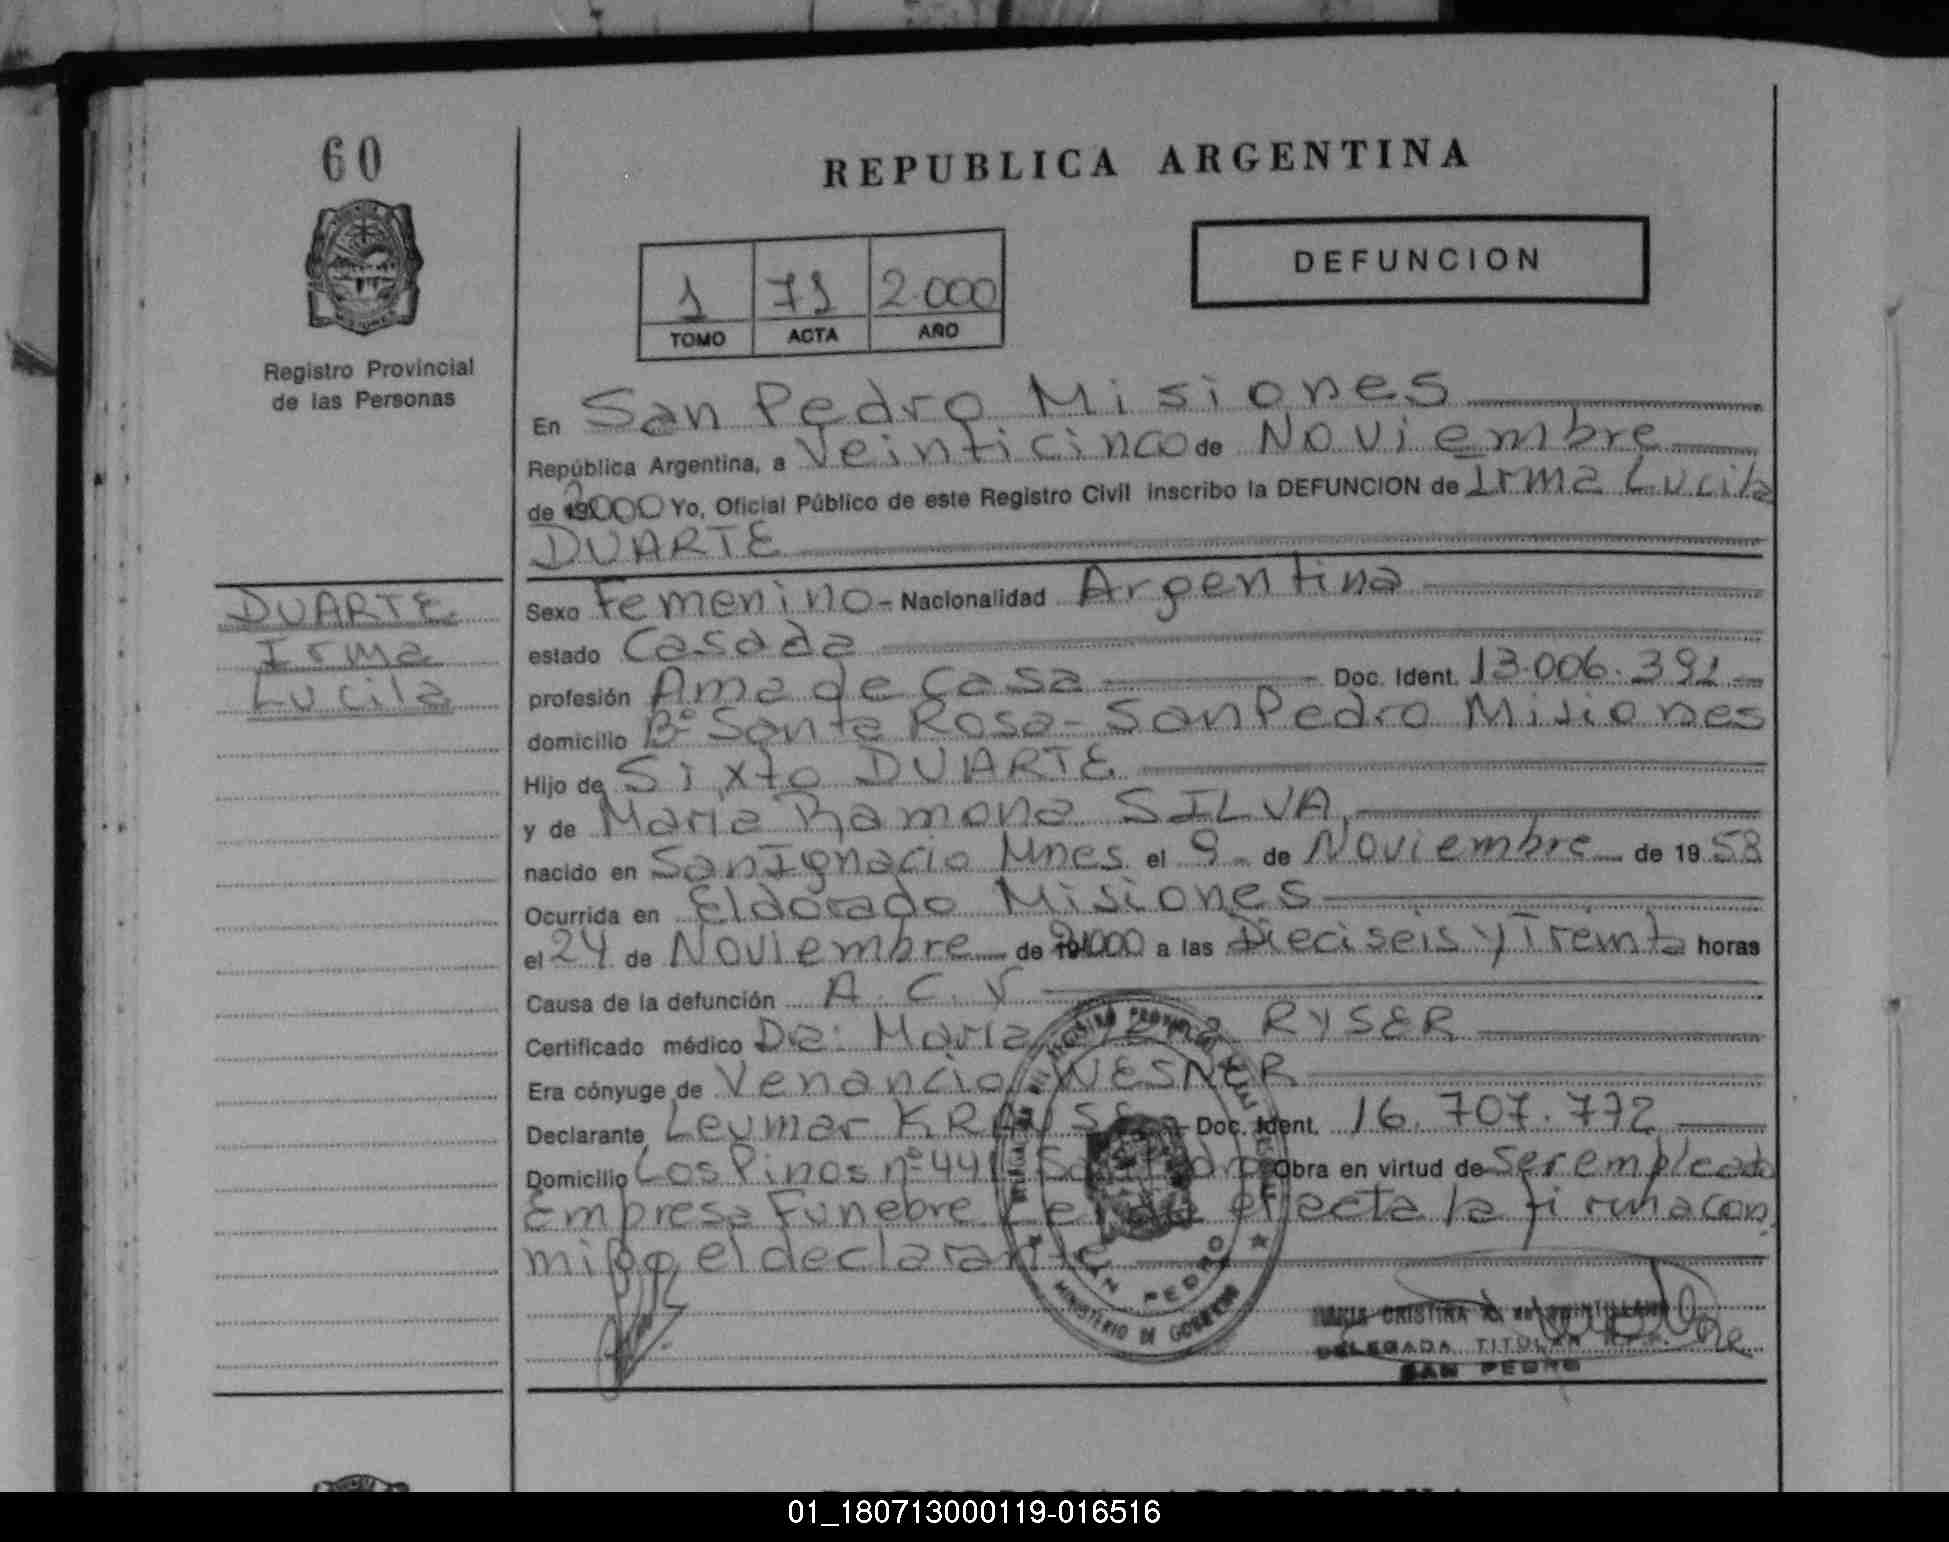 60
REPUBLICA ARGENTINA
DEFUNCION
1 71 2.000
TOMO ACTA AÑO
Registro Provincial
de las Personas
En San Pedro Misiones
República Argentina, a Veinticinco de Noviembre
de 2000 Yo, Oficial Público de este Registro Civil inscribo la DEFUNCION de Irma Lucila
DUARTE
DUARTE
Irma
Lucila
Sexo Femenino - Nacionalidad Argentina
estado Casada
profesión Ama de casa Doc. Ident. 13.006.391
domicilio Bº Santa Rosa - San Pedro Misiones
Hijo de Sixto DUARTE
y de Maria Ramona SILVA
nacido en San Ignacio Mnes el 9 de Noviembre de 1958
Ocurrida en Eldorado Misiones
el 24 de Noviembre de 2000 a las Dieciseis y Treinta horas
Causa de la defunción A.C.V
Certificado médico Dra: Maria RYSER
Era cónyuge de Venancio WESNER
Declarante Leumar KRAUSE Doc. Ident. 16.707.772
Domicilio Los Pinos nº 441 San Pedro Obra en virtud de Ser empleado
Empresa Funebre efecta la firma con
migo el declarante
SAN PEDRO
MINISTERIO DE GOBIERNO
MARIA CRISTINA
DELEGADA TITULAR
SAN PEDRO
01_180713000119-016516